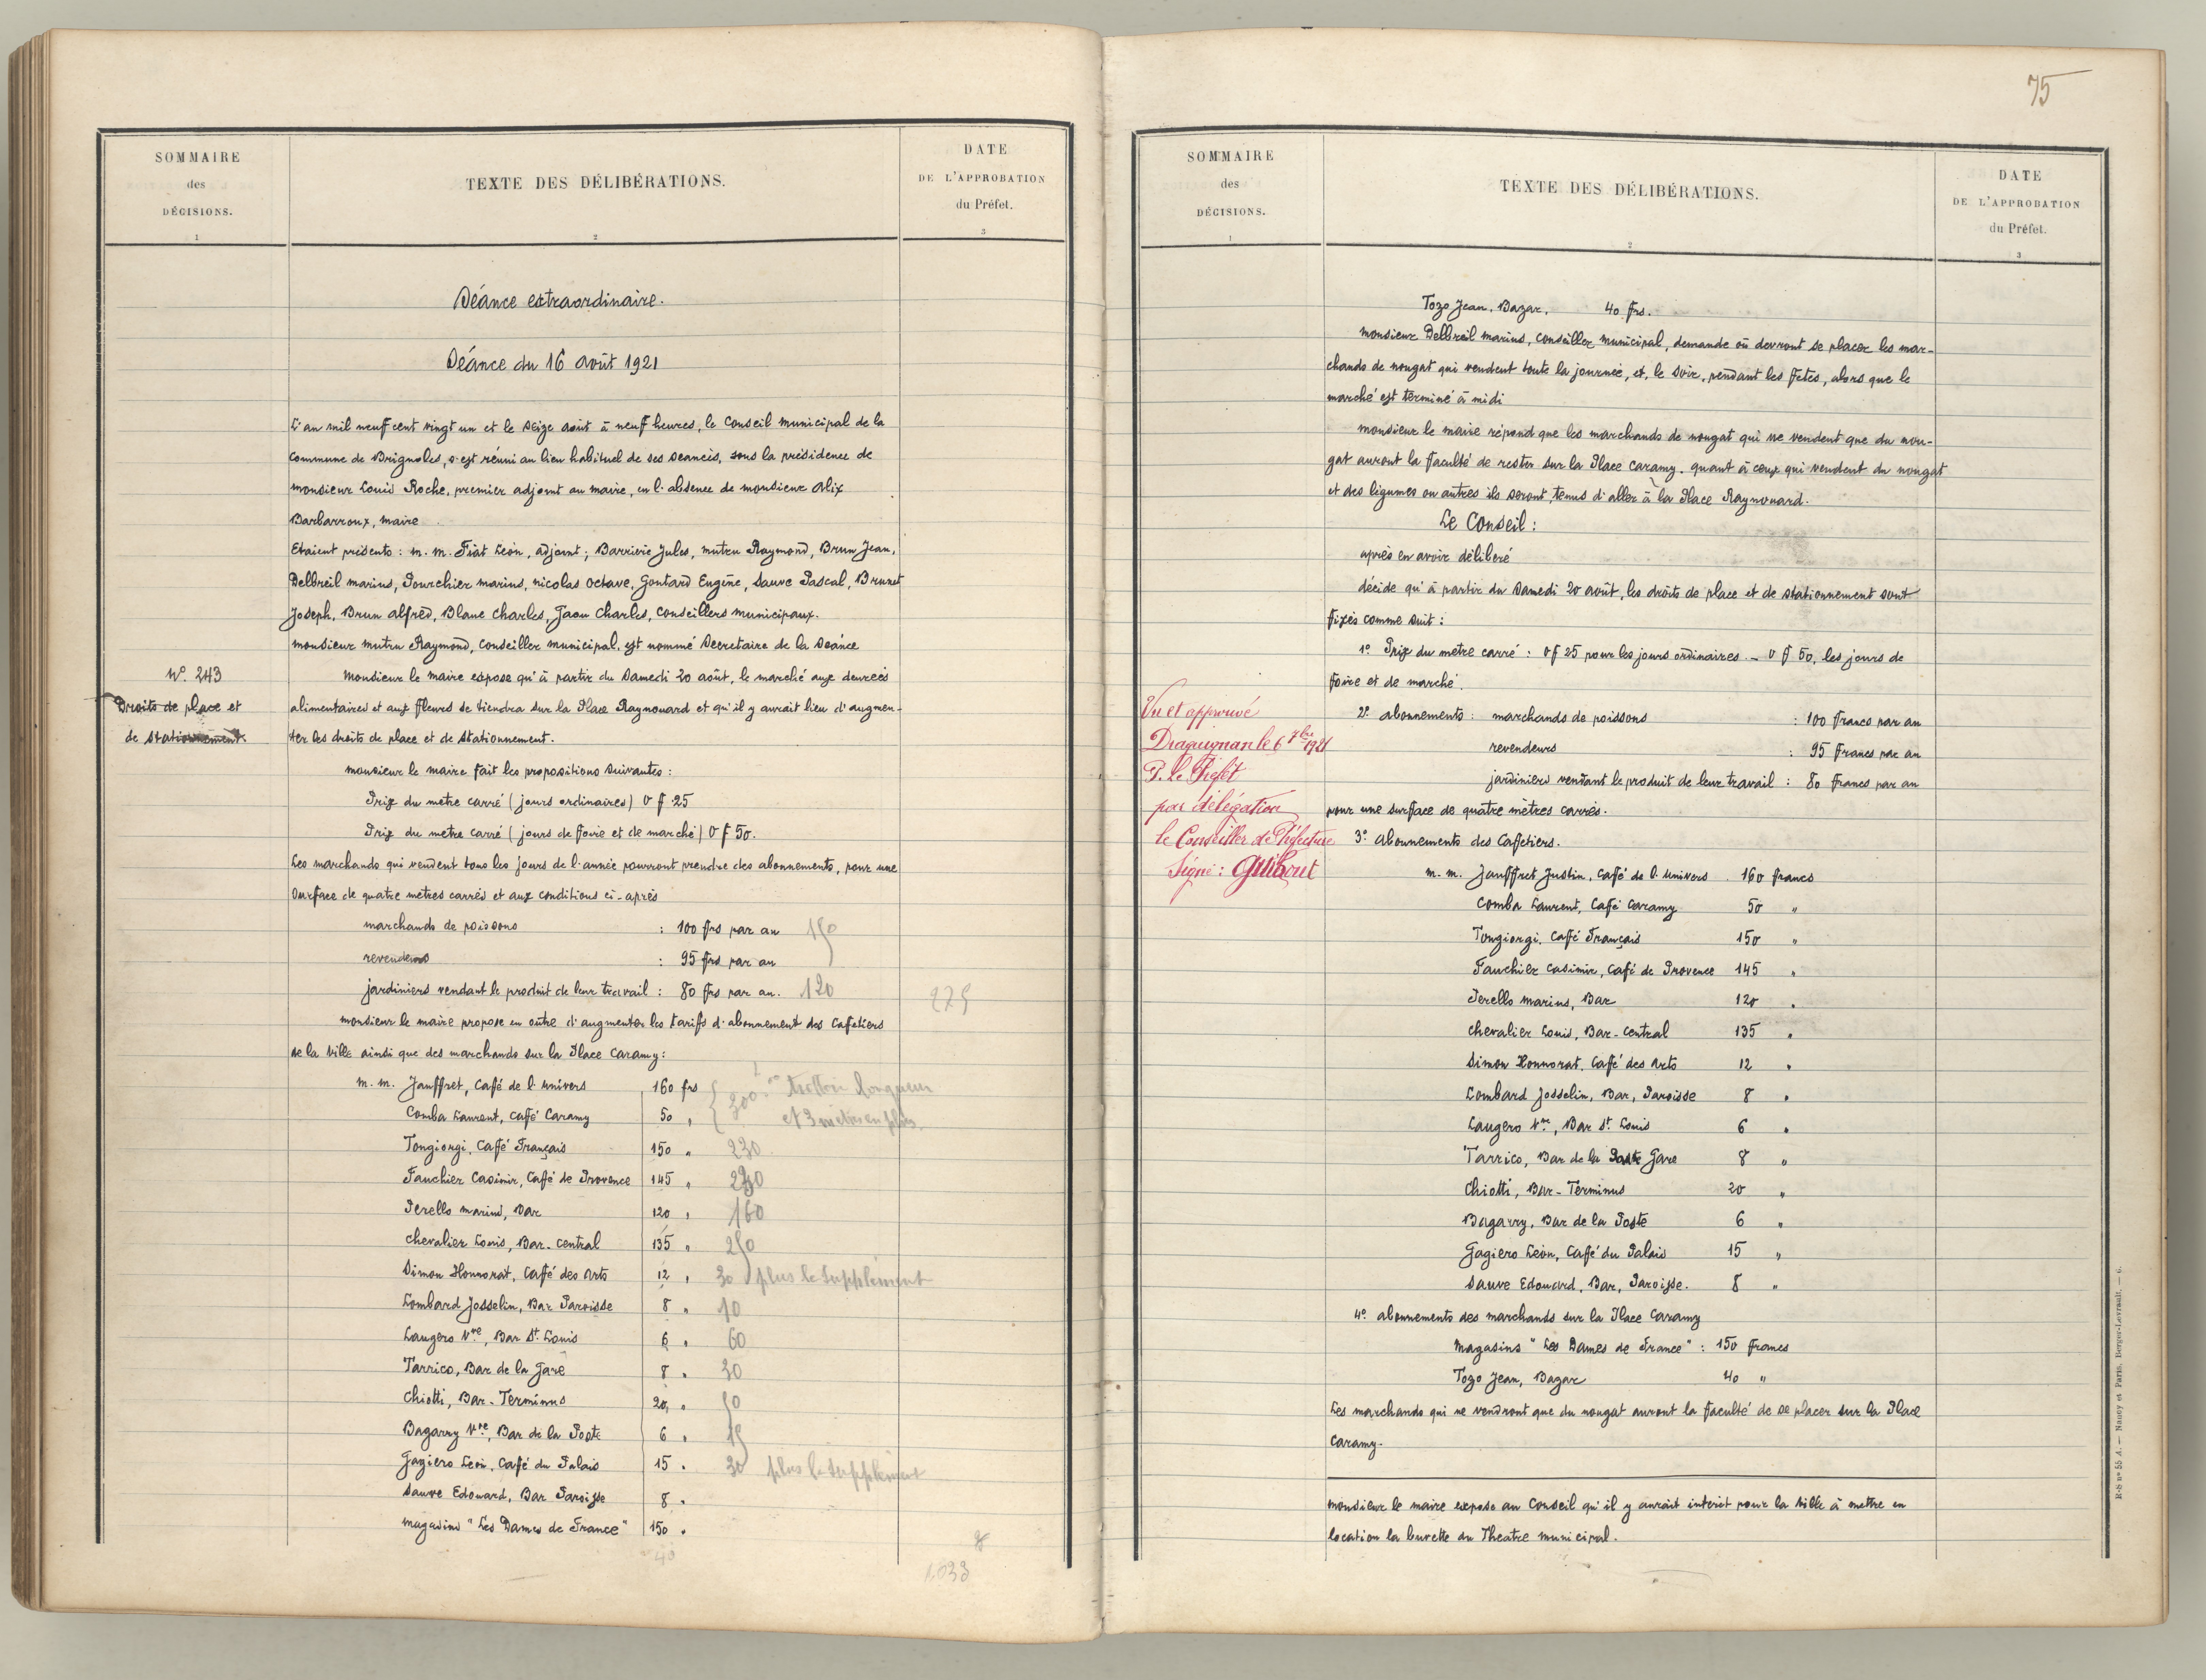 SOMMAIRE
des
DÉCISIONS.
1
TEXTE DES DÉLIBÉRATIONS.
2
DATE
DE L'APPROBATION
du Préfet.
3
Séance extraordinaire.
Séance du 16 août 1921
L'an mil neuf cent vingt un et le seize août à neuf heures, le Conseil municipal de la
Commune de Brignoles, s'est réuni au lieu habituel de ses séances, sous la présidence de
monsieur Louis Roche, premier adjoint au maire, en l'absence de monsieur Alix
Barbarroux, maire
Etaient présents : m. m. Fiat Léon, adjoint; Barrière Jules, mutru Raymond, Brun Jean,
Delbreil marius, Pourchier marius, nicolas Octave, Gontard Eugène, Sauve Pascal, Brunet
Joseph, Brun alfred, Blanc Charles, Jaou Charles, Conseillers municipaux.
monsieur mutru Raymond, Conseiller municipal, est nommé Secretaire de la Séance
N° 243
Droits de place et
de stationnement.
Monsieur le maire expose qu'à partir du Samedi 20 août, le marché aux denrées
alimentaires et aux fleurs se tiendra sur la Place Raynouard et qu'il y aurait lieu d'augmen-
ter les droits de place et de stationnement.
monsieur le maire fait les propositions suivantes :
Prix du metre carré (jours ordinaires) 0 f 25
Prix du metre carré (jours de foire et de marché) 0 f 50.
Les marchands qui vendent tous les jours de l'année pourront prendre des abonnements, pour une
Surface de quatre metres carrés et aux conditions ci-après
marchands de poissons : 100 frs par an 150
revendeurs : 95 frs par an
jardiniers vendant le produit de leur travail : 80 frs par an. 120
275
monsieur le maire propose en outre d'augmenter les tarifs d'abonnement des Cafetiers
de la Ville ainsi que des marchands sur la Place Caramy :
m. m. Jauffret, Café de l'univers 160 frs 300 trottoir longueur
Comba Laurent, Café Caramy 50 " et 3 mètres en plus.
Tongiorgi, Café Français 150 " 230
Fauchier Casimir, Café de Provence 145 " 230
Perello marius, Bar 120 " 160
Chevalier Louis, Bar-Central 135 " 250
Simon Honnorat, Café des Arts 12 " 30 plus le supplément
Lombard Josselin, Bar Paroisse 8 " 10
Laugero Vve, Bar St. Louis 6 " 60
Tarrico, Bar de la Gare 8 " 30
Chiotti, Bar-Terminus 20 " 50
Bagarry Vve, Bar de la Poste 6 " 15
Gagiero Léon, Café du Palais 15 " 30 plus le supplément
Sauve Edouard, Bar Paroisse 8 "
Magasins "Les Dames de France" 150 "
40
1.033
75
SOMMAIRE
des
DÉCISIONS.
1
TEXTE DES DÉLIBÉRATIONS.
2
DATE
DE L'APPROBATION
du Préfet.
3
Tozo Jean, Bazar, 40 frs.
Monsieur Delbreil marius, Conseiller municipal, demande où devront se placer les mar-
chands de nougat qui vendent toute la journée, et, le Soir, pendant les Fetes, alors que le
marché est terminé à midi
monsieur le maire répond que les marchands de nougat qui ne vendent que du nou-
gat auront la faculté de rester sur la Place Caramy. quant à ceux qui vendent du nougat
et des légumes ou autres ils seront, tenus d'aller à la Place Raynouard.
Le Conseil :
après en avoir délibéré
décide qu'à partir du Samedi 20 août, les droits de place et de stationnement sont
fixés comme suit :
1° Prix du metre carré : 0 f 25 pour les jours ordinaires. - 0 f 50, les jours de
foire et de marché.
2° abonnements : marchands de poissons : 100 francs par an
revendeurs : 95 francs par an
jardiniers vendant le produit de leur travail : 80 francs par an
pour une surface de quatre mètres carrés.
Vu et approuvé
Draguignan le 6 7bre 1921
P. le Préfet
par délégation
le Conseiller de Préfecture
Signé : Guibout
3° Abonnements des Cafetiers.
m. m. Jauffret Justin, Café de l'univers 160 francs
Comba Laurent, Café Caramy 50 "
Tongiorgi, Café Français 150 "
Fauchier Casimir, Café de Provence 145 "
Perello Marius, Bar 120 "
Chevalier Louis, Bar-Central 135 "
Simon Honnorat, Café des Arts 12 "
Lombard Josselin, Bar, Paroisse 8 "
Laugero Vve, Bar St. Louis 6 "
Tarrico, Bar de la Poste Gare 8 "
Chiotti, Bar-Terminus 20 "
Bagarry, Bar de la Poste 6 "
Gagiero Léon, Café du Palais 15 "
Sauve Edouard, Bar, Paroisse. 8 "
4° abonnements des marchands sur la Place Caramy
Magasins "Les Dames de France" : 150 francs
Tozo Jean, Bazar 40 "
Les marchands qui ne vendront que du nougat auront la faculté de se placer sur la Place
Caramy.
Monsieur le maire expose au Conseil qu'il y aurait intérêt pour la Ville à mettre en
location la buvette du Theatre municipal.
E-S n° 55 A. — Nancy et Paris, Berger-Levrault. — 6.